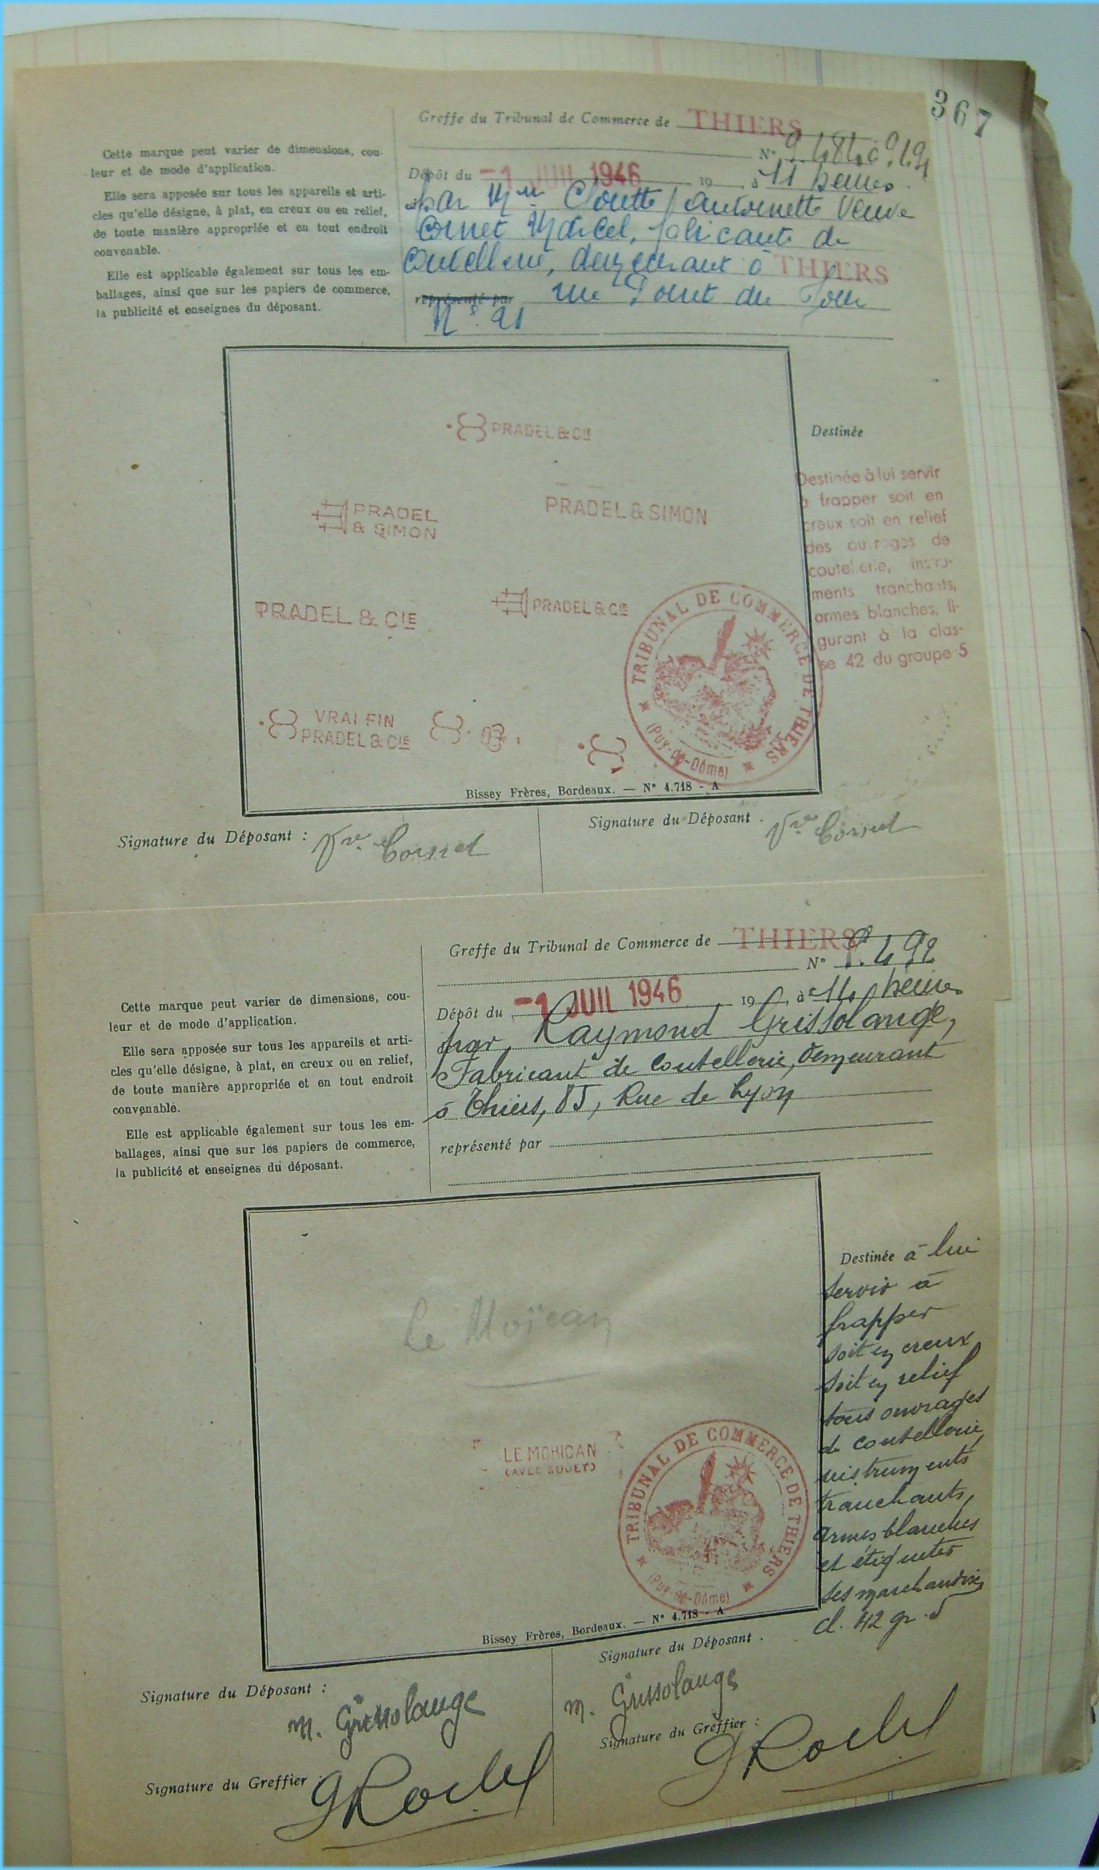 367
Greffe du Tribunal de Commerce de THIERS
N°
Dépôt du -1 JUIL 1946 19 à 11 heures
par Mme Antoinette Veuve
Cornet Marcel, fabricante de
coutellerie, demeurant à THIERS
représenté par rue du
N° 21
Cette marque peut varier de dimensions, cou-
leur et de mode d'application.
Elle sera apposée sur tous les appareils et arti-
cles qu'elle désigne, à plat, en creux ou en relief,
de toute manière appropriée et en tout endroit
convenable.
Elle est applicable également sur tous les em-
ballages, ainsi que sur les papiers de commerce,
la publicité et enseignes du déposant.
PRADEL & CIE
PRADEL
& SIMON
PRADEL & SIMON
PRADEL & CIE
PRADEL & CIE
VRAI FIN
PRADEL & CIE
TRIBUNAL DE COMMERCE DE THIERS
(Puy-de-Dôme)
Bissey Frères, Bordeaux. — N° 4.718 - A
Destinée
Destinée à lui servir
à frapper soit en
creux soit en relief
des ouvrages de
coutellerie, instru-
ments tranchants,
armes blanches, fi-
gurant à la clas-
se 42 du groupe 5
Signature du Déposant : Vve Cornet
Signature du Déposant. Vve Cornet
Greffe du Tribunal de Commerce de THIERS
N° 8.492
Dépôt du -1 JUIL 1946 19 , à 11 heures
par Raymond Grissolange,
Fabricant de coutellerie, demeurant
à Thiers, 85, Rue de Lyon
représenté par
Cette marque peut varier de dimensions, cou-
leur et de mode d'application.
Elle sera apposée sur tous les appareils et arti-
cles qu'elle désigne, à plat, en creux ou en relief,
de toute manière appropriée et en tout endroit
convenable.
Elle est applicable également sur tous les em-
ballages, ainsi que sur les papiers de commerce,
la publicité et enseignes du déposant.
Le Moïcan
LE MOHICAN
(AVEC SUJET)
TRIBUNAL DE COMMERCE DE THIERS
(Puy-de-Dôme)
Bissey Frères, Bordeaux. — N° 4.718 - A
Destinée à lui
servir à
frapper
soit en creux
soit en relief
tous ouvrages
de coutellerie,
instruments
tranchants,
armes blanches
et étiqueter
ses marchandises
cl. 42 gr. 5
Signature du Déposant :
M. Grissolange
Signature du Déposant.
M. Grissolange
Signature du Greffier :
Signature du Greffier :